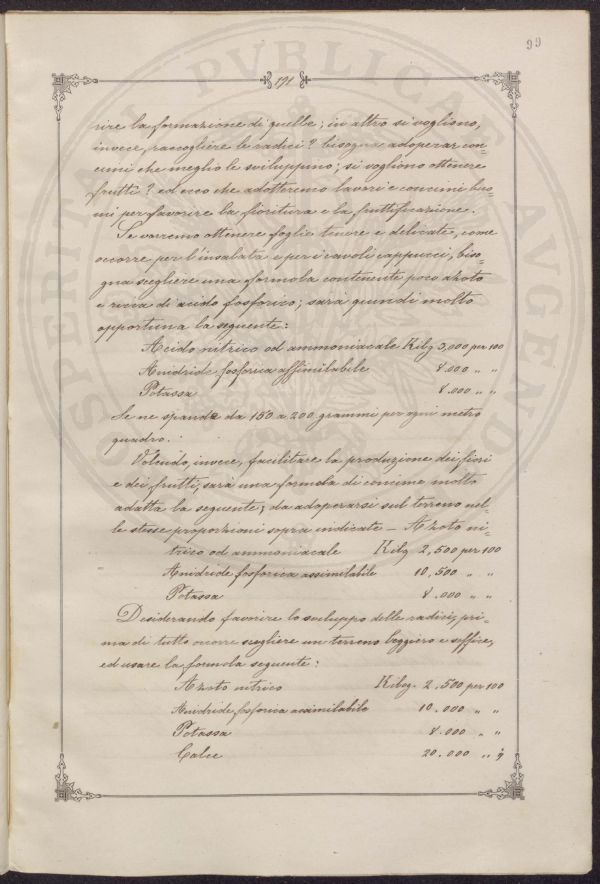 99
191
rire la formazione di quelle; in altro si vogliono,
invece, raccogliere le radici? bisogna adoperar con-
cimi che meglio le sviluppino; si vogliono ottenere
frutti? ed ecco che adotteremo lavori e concimi buo-
ni per favorire la fioritura e la fruttificazione.
Se vorremo ottenere foglie tenere e delicate, come
occorre per l'insalata e per i cavoli cappucci, biso-
gna scegliere una formola contenente poco azoto
e ricca di acido fosforico; sarà quindi molto
opportuna la seguente:
Acido nitrico od ammoniacale Kilg 3,000 per 100
Anidride fosforica assimilabile 8.000 " "
Potassa 8.000 " "
Se ne spande da 150 a 200 grammi per ogni metro
quadro.
Volendo, invece, facilitare la produzione dei fiori
e dei frutti, sarà una formola di concime molto
adatta la seguente, da adoperarsi sul terreno nel-
le stesse proporzioni sopra indicate - Azoto ni-
trico od ammoniacale Kilg 2,500 per 100
Anidride fosforica assimilabile 10,500 " "
Potassa 8.000 " "
Desiderando favorire lo sviluppo delle radici, pri-
ma di tutto occorre scegliere un terreno leggiero e soffice,
ed usare la formola seguente:
Azoto nitrico Kilog. 2.500 per 100
Anidride fosforica assimilabile 10.000 " "
Potassa 8.000 " "
Calce 20.000 " "
PROSPERITATI PVBLICAE AVGENDAE